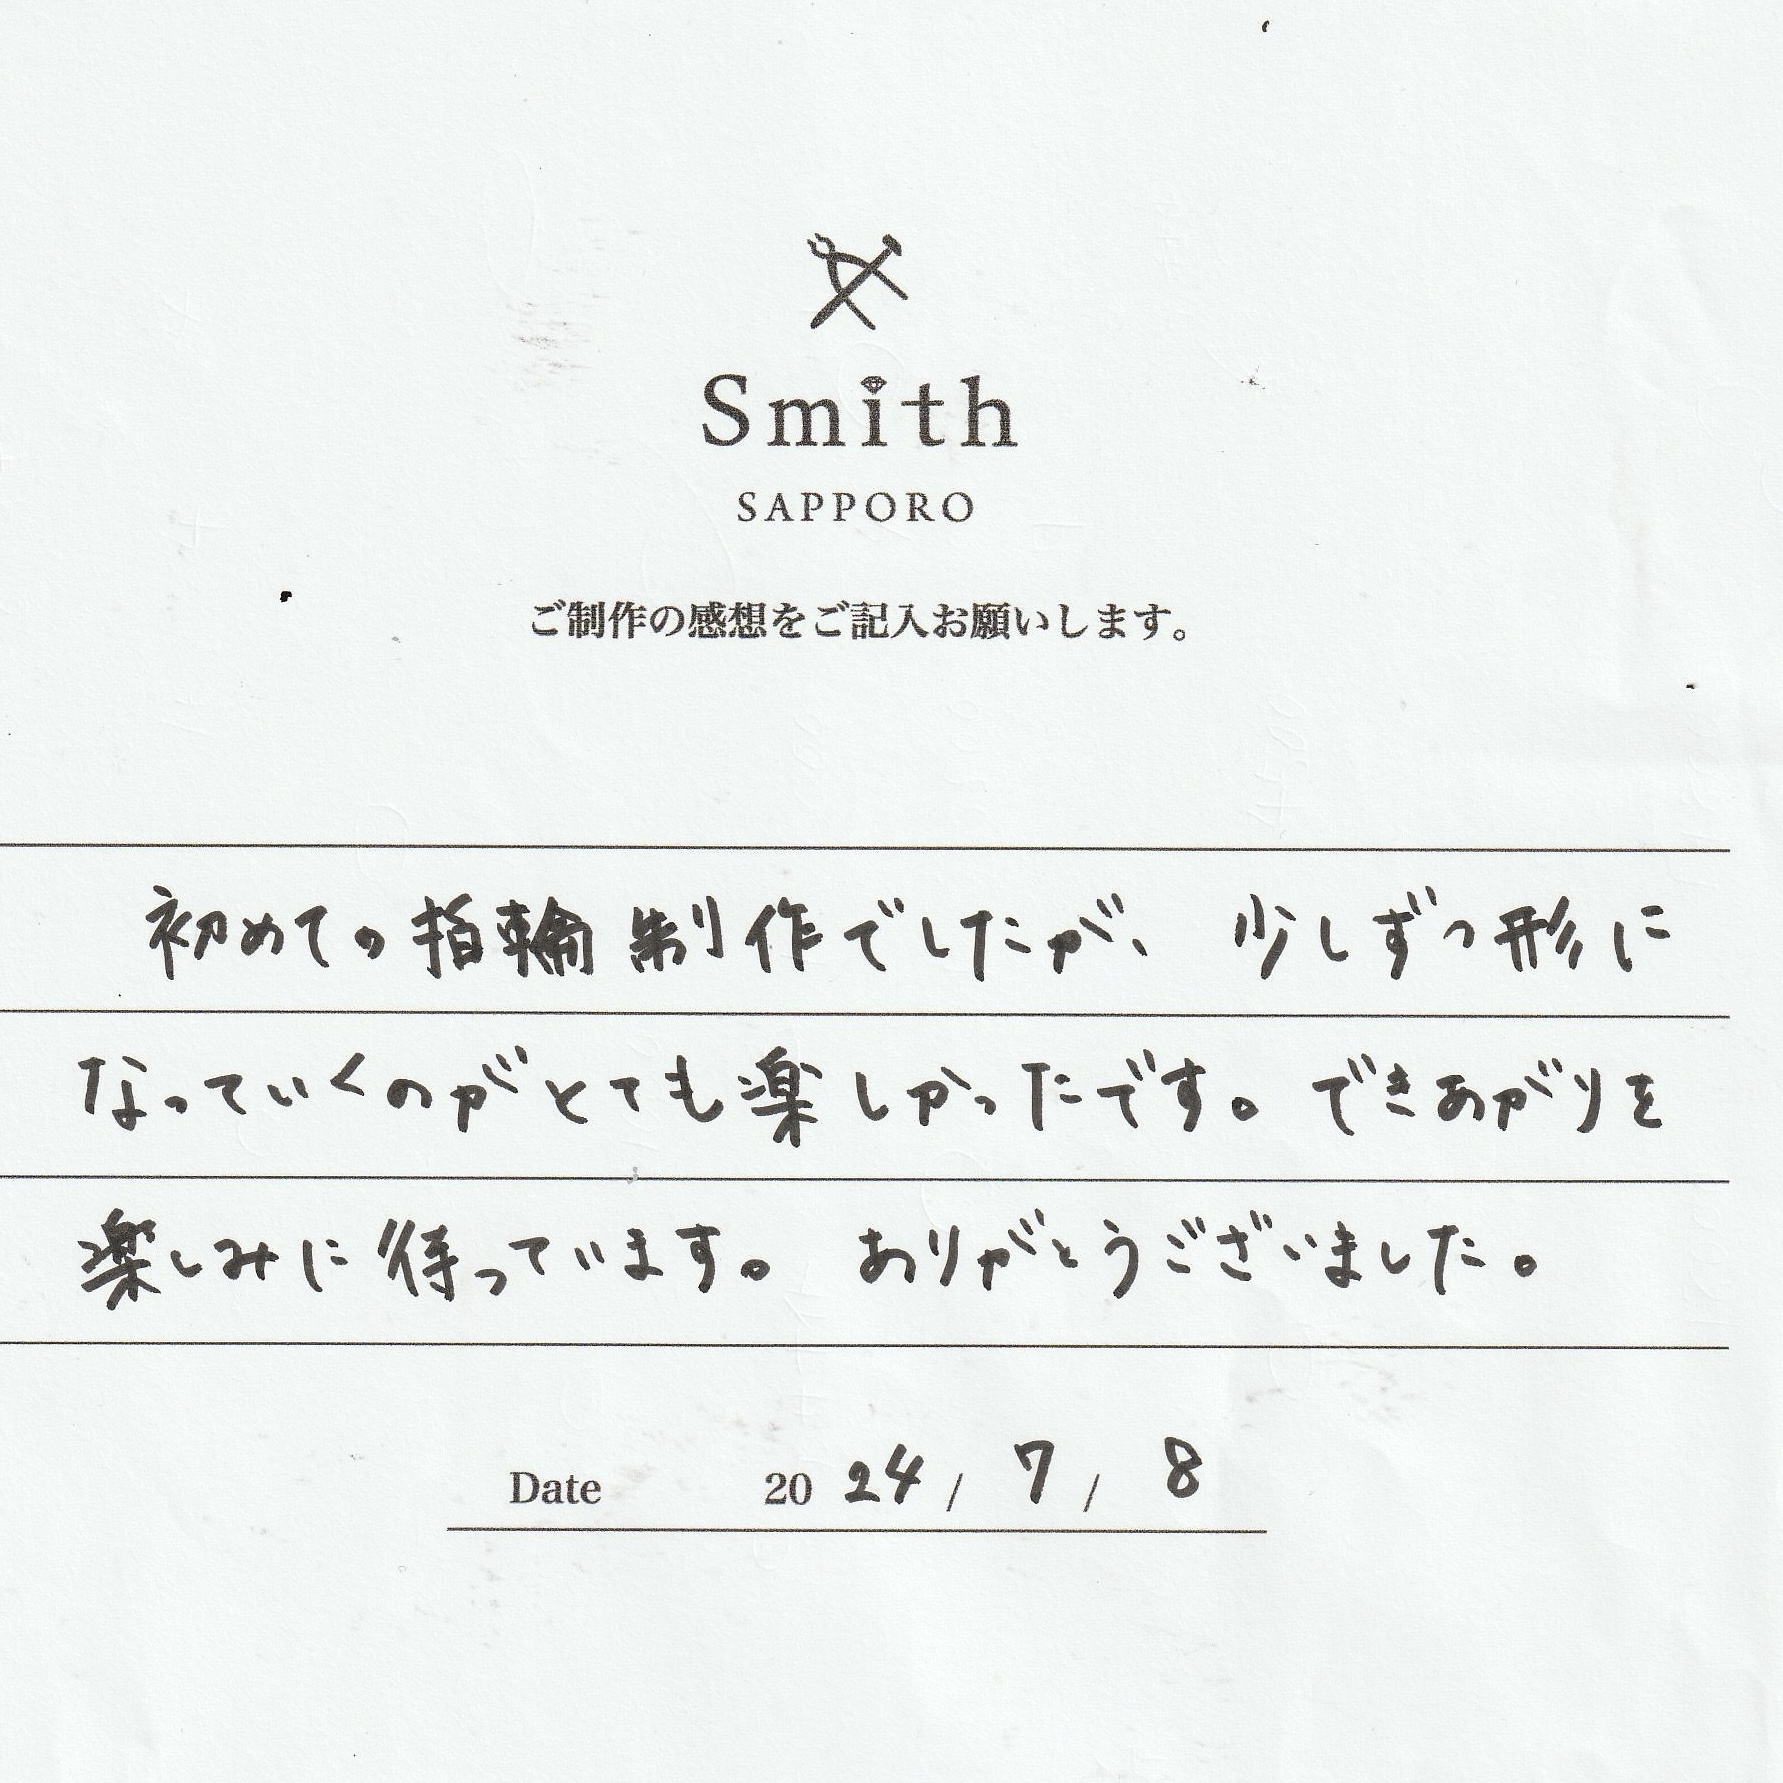 Smith
SAPPORO
ご制作の感想をご記入お願いします。
初めての指輪制作でしたが、少しずつ形に
なっていくのがとても楽しかったです。できあがりを
楽しみに待っています。ありがとうございました。
Date 2024/7/8